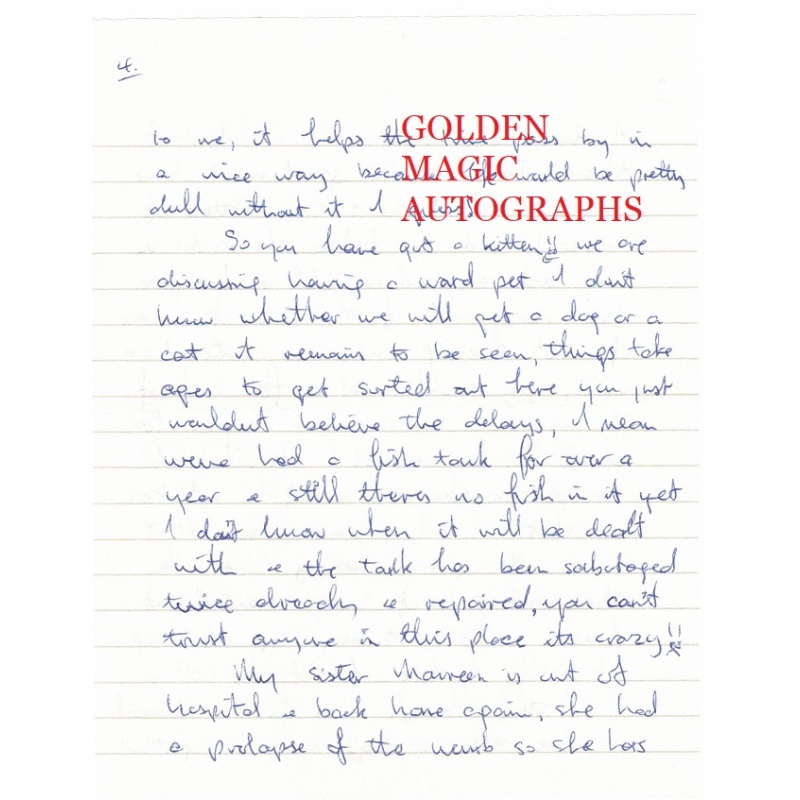 4.
to me, it helps the time pass by in
a nice way because life would be pretty
dull without it I guess.
GOLDEN
MAGIC
AUTOGRAPHS
So you have got a kitten!! we are
discussing having a ward pet I don't
know whether we will get a dog or a
cat it remains to be seen, things take
ages to get sorted out here you just
wouldn't believe the delays, I mean
weve had a fish tank for over a
year & still theres no fish in it yet
I don't know when it will be dealt
with & the tank has been sabotaged
twice already & repaired, you can't
trust anyone in this place its crazy!!
My sister Maureen is out of
hospital & back home again, she had
a prolapse of the womb so she has